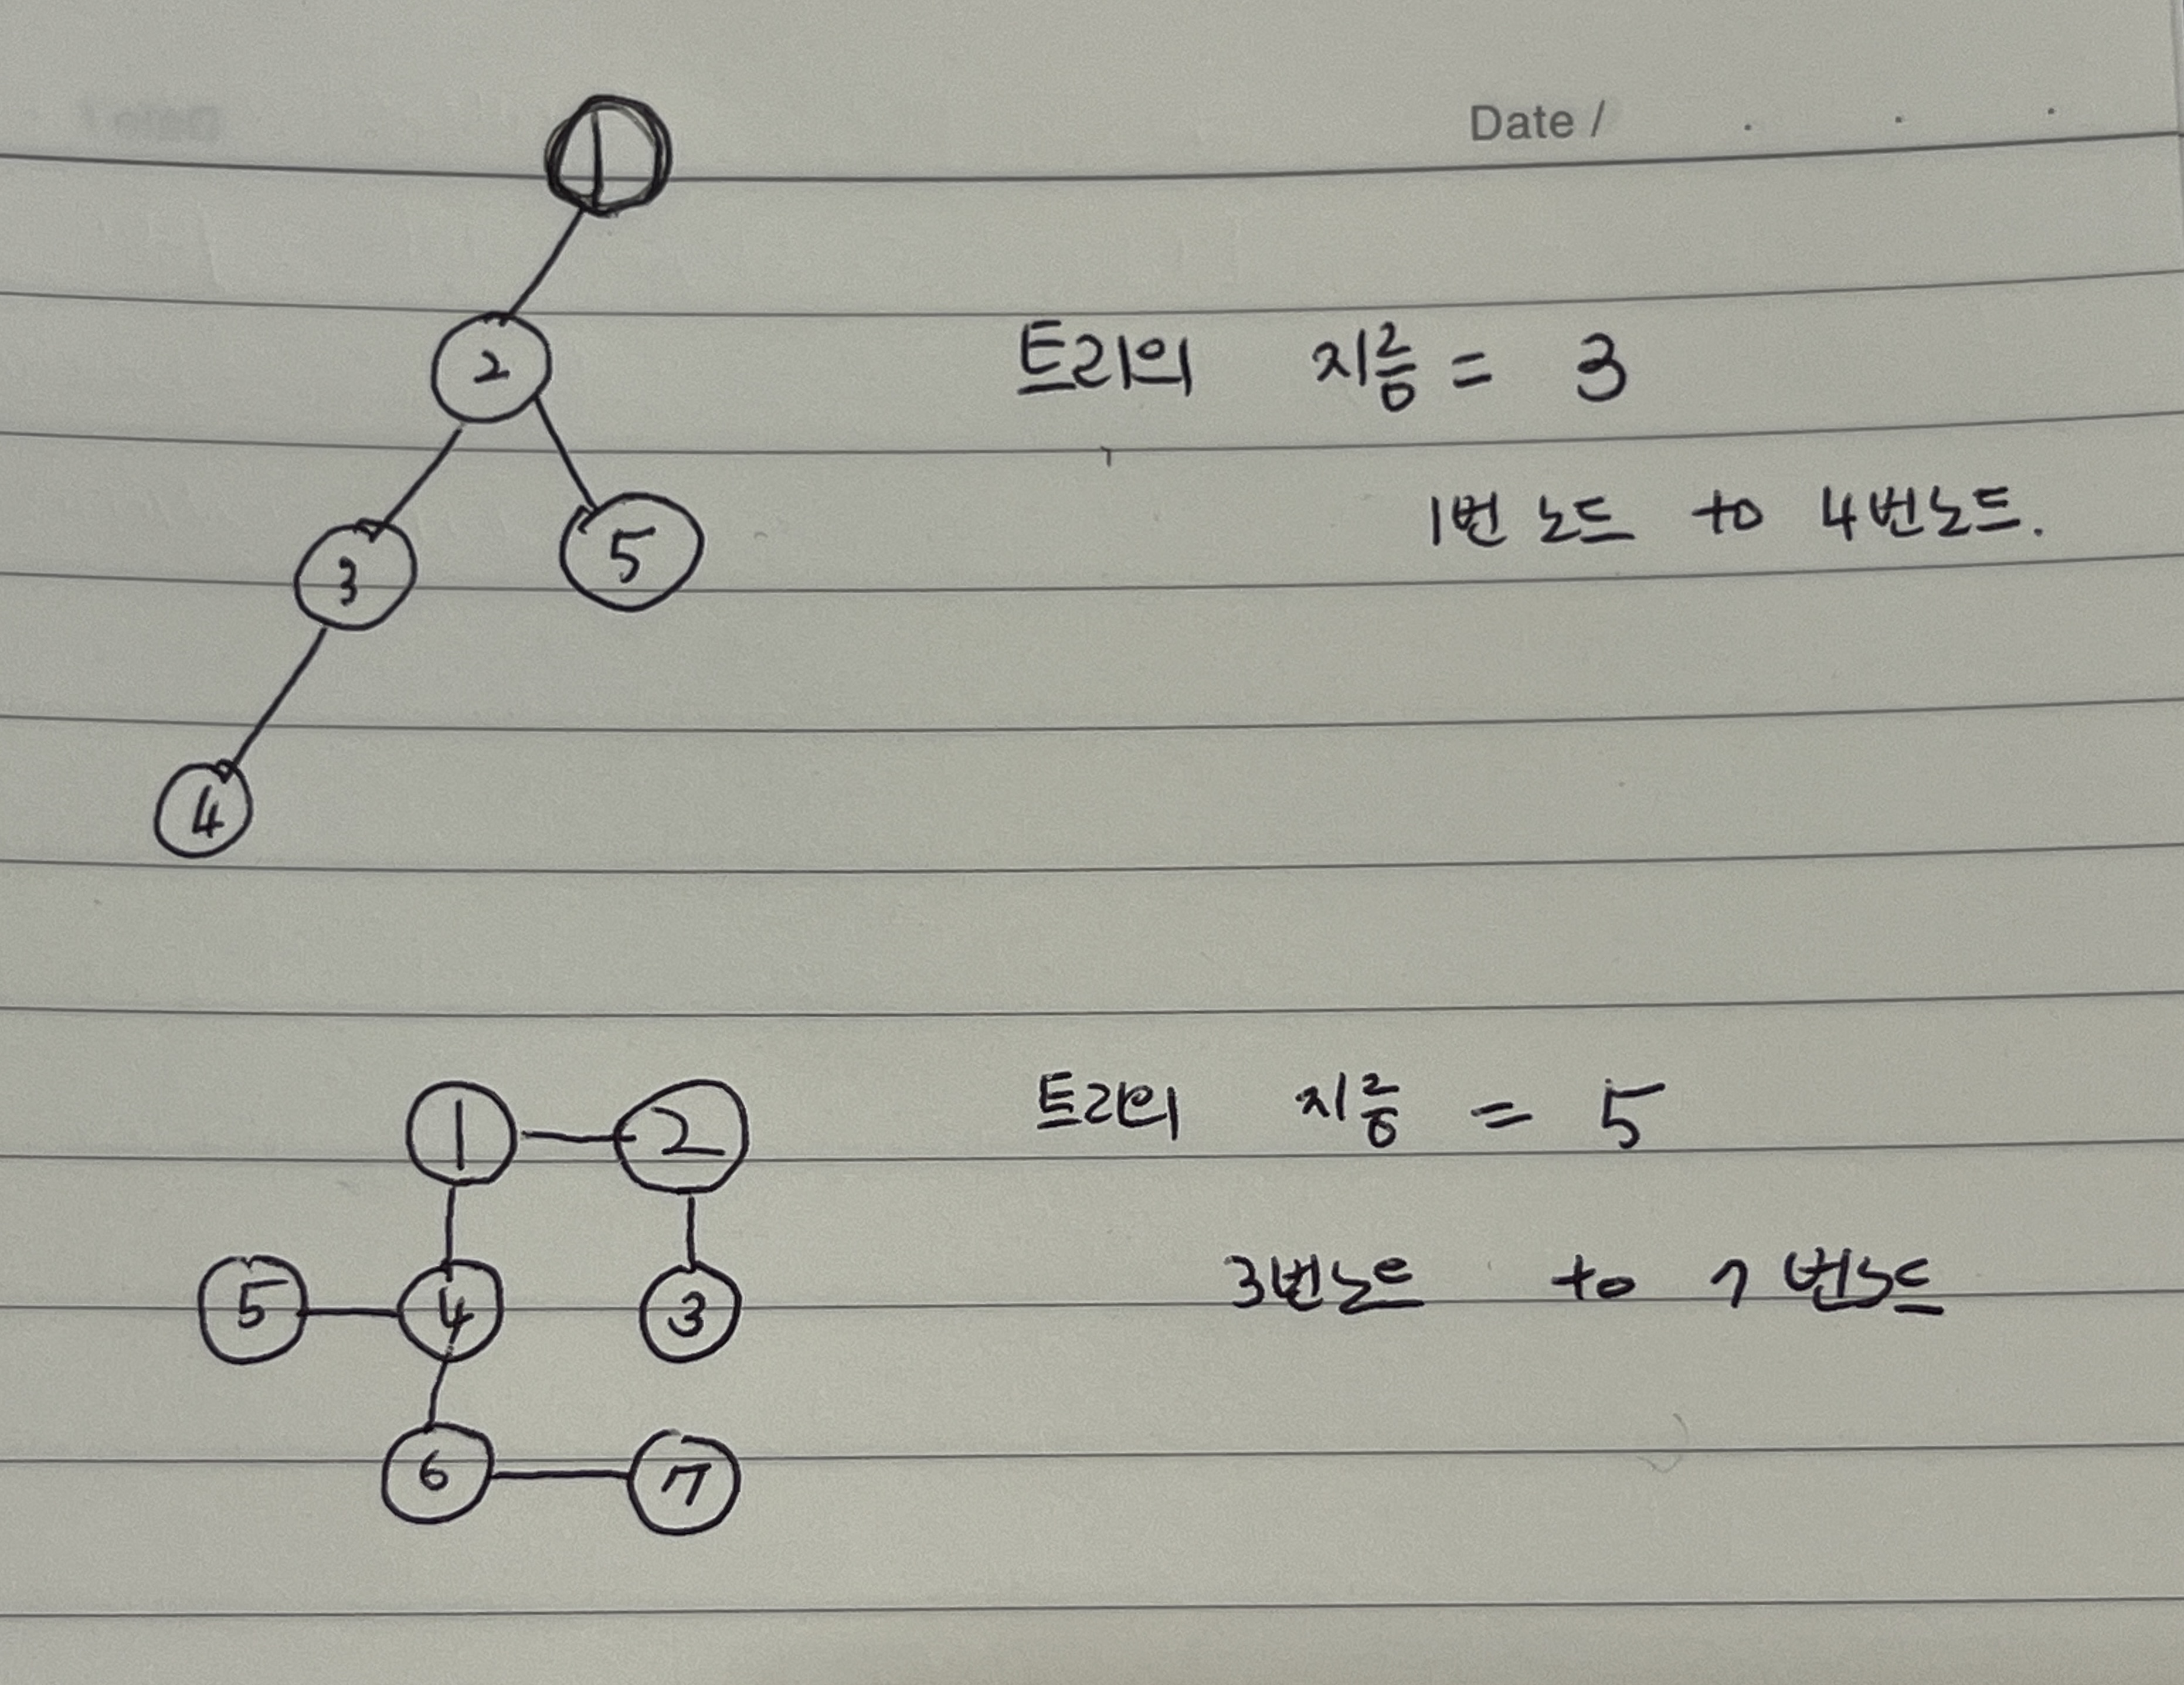 Date /
1
2
트리의 지름 = 3
1번 노드 to 4번노드.
3 5
4
1 2
트리의 지름 = 5
5 4 3
3번노드 to 7번노드
6 7